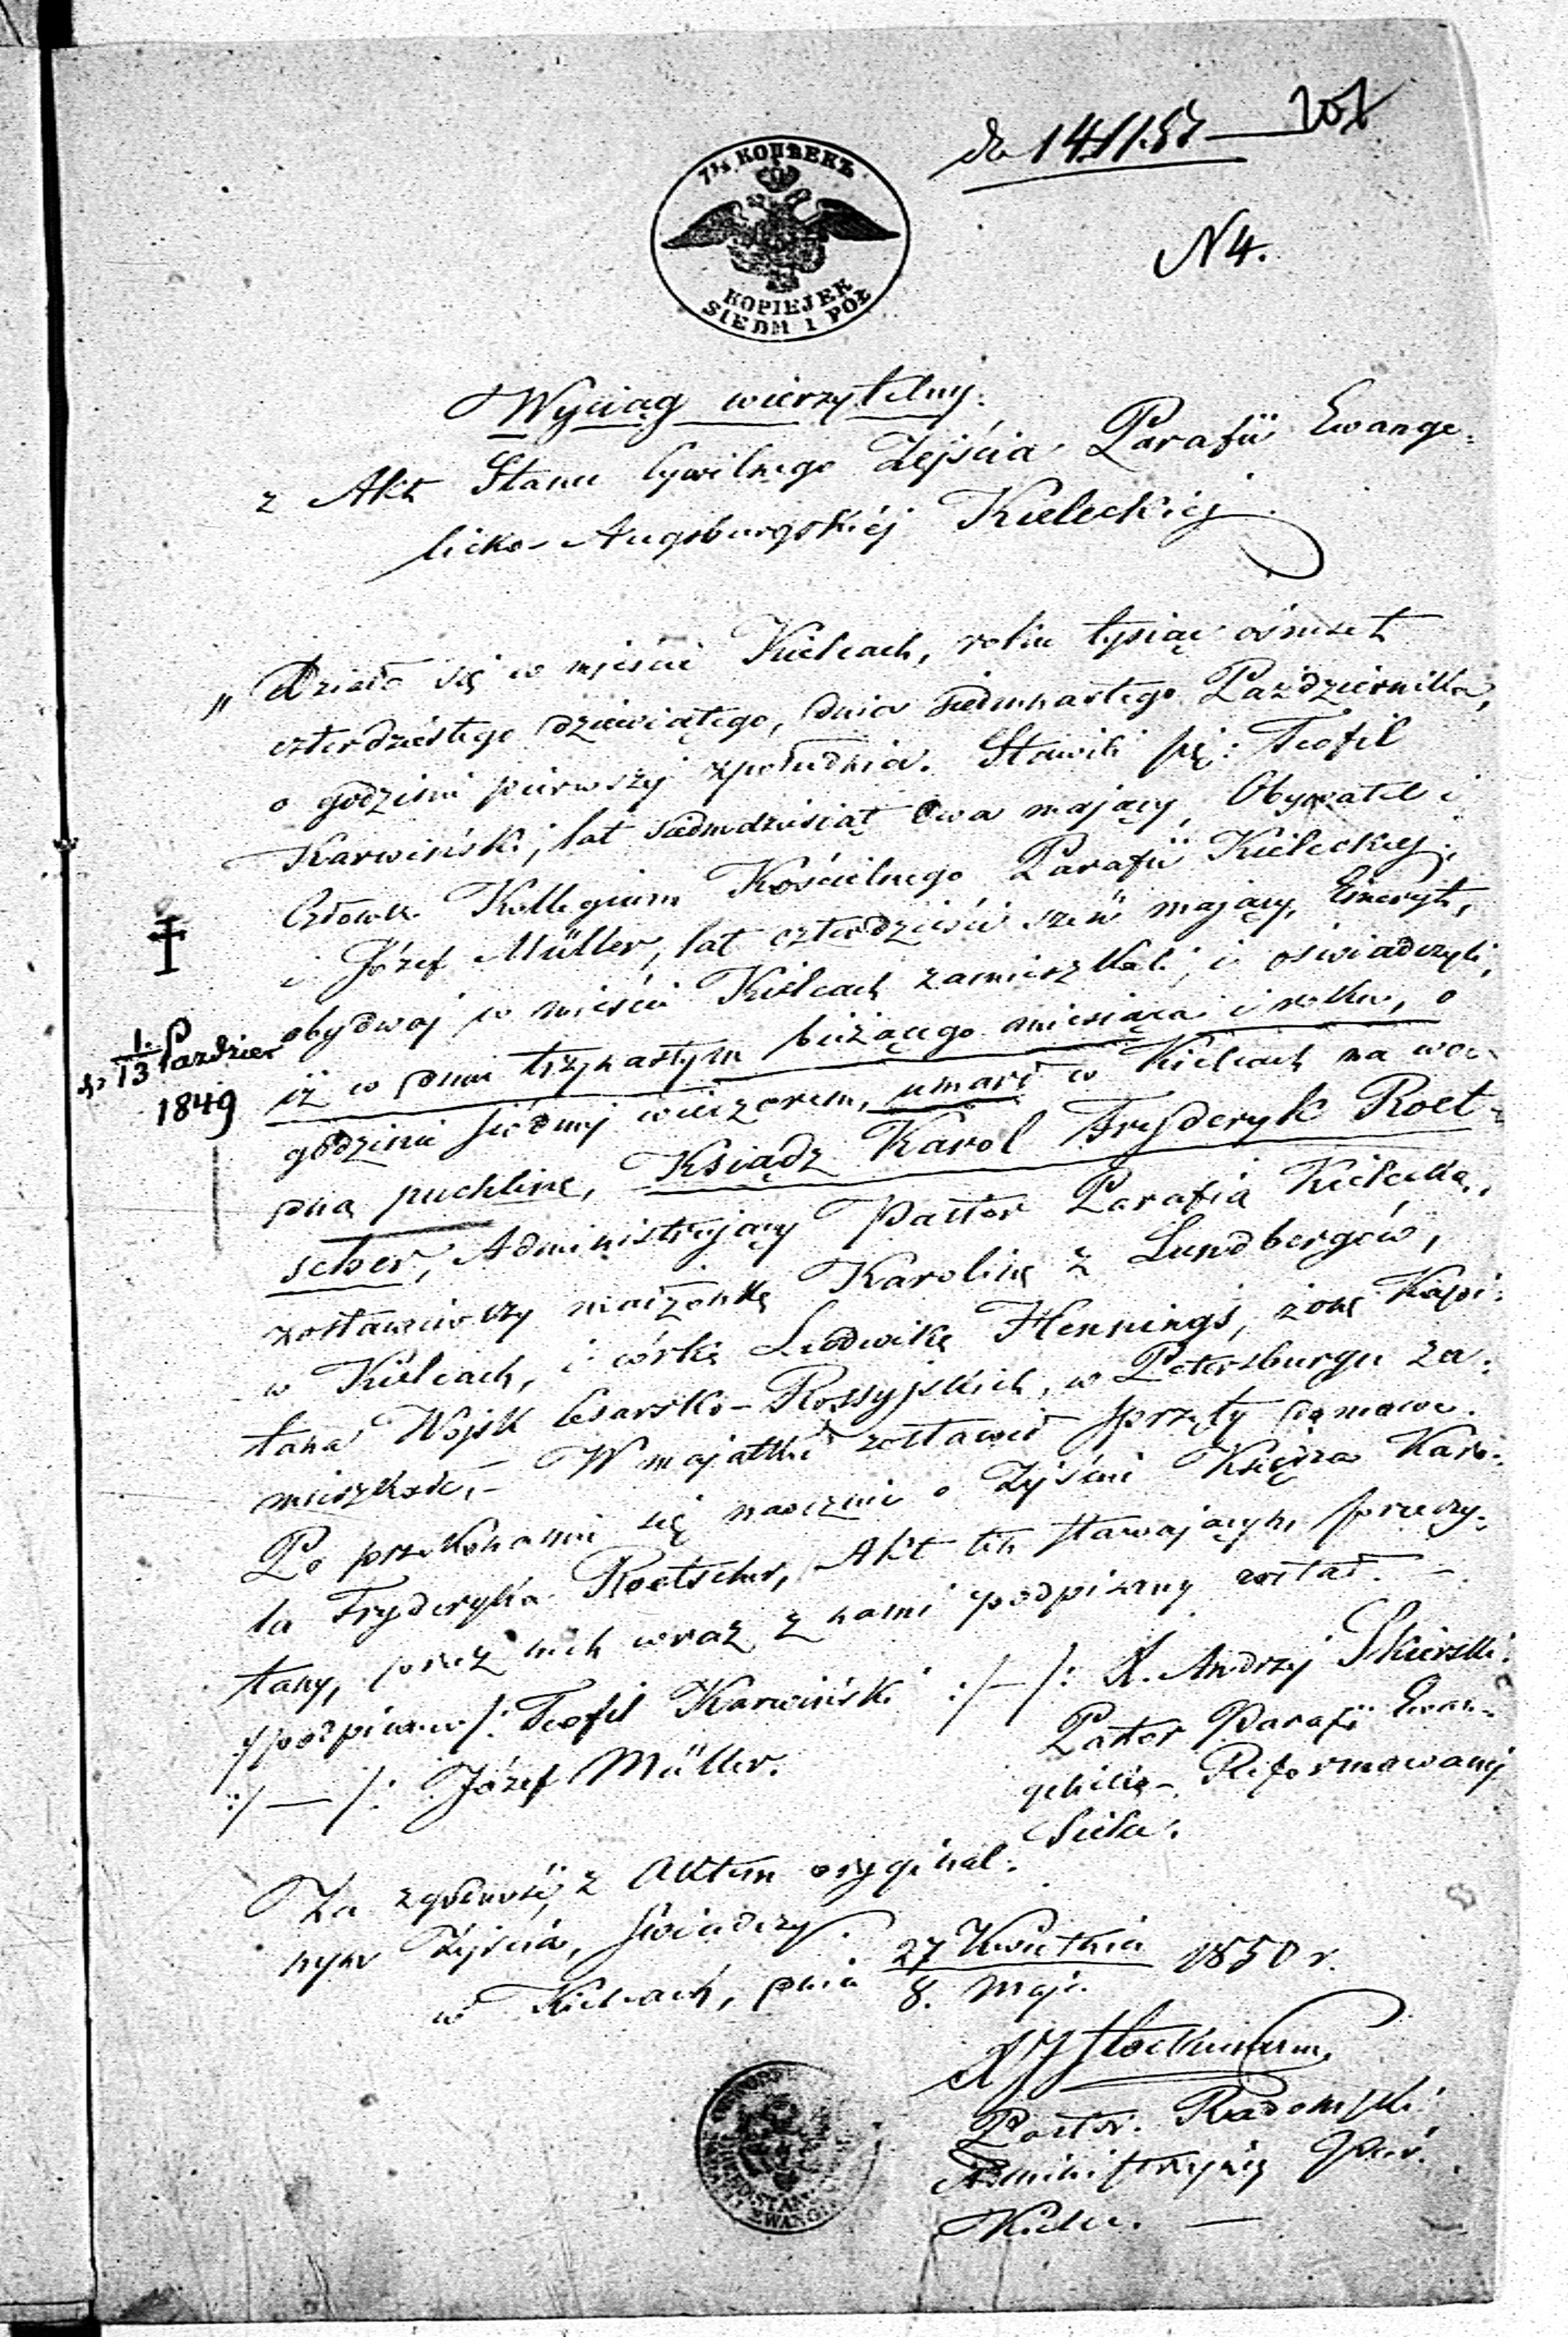 do 141/1.53 — 201
7½ КОПѢЕКЪ
KOPIEJEK
SIEDM I PÓŁ
N 4.
Wyciąg wierzytelny.
z Akt Stanu Cywilnego Zejścia Parafii Ewange:
licko-Augsburgskiéj Kieleckiej.
„Działo się w mieście Kielcach, roku tysiąc ośmset
czterdziéstego dziewiątego, dnia siedmnastego Października,
o godzinie pierwszej zpołudnia. Stawili się: Teofil
Karwiński, lat siedmdziesiąt dwa mający, Obywatel i
Członek Kollegium Kościelnego Parafii Kieleckiej;
i Józef Müller, lat czterdzieści sześć mający, Emeryt,
obydwaj w mieście Kielcach zamieszkali, i oświadczyli,
iż w dniu trzynastym bieżącego miesiąca i roku, o
godzinie siódmej wieczorem, umarł w Kielcach na wo-
dną puchlinę, Ksiądz Karol Fryderyk Roet-
scher, Administrujący Pastor Parafią Kielecką,
zostawiwszy małżonkę Karolinę z Lundbergów,
w Kielcach, i córkę Ludwikę Hennings, żonę Kapi:
tana Wojsk Cesarsko-Rossyjskich, w Petersburgu za:
mieszkałe,- W majątku zostawił sprzęty domowe.
Po przekonaniu się naocznie o Zejściu Księdza Karo:
la Fryderyka Roetscher, Akt ten stawającym przeczy:
tany, przez nich wraz z nami podpisany został. —
:/podpisano/: Teofil Karwiński :/—/: X. Andrzej Skierski.
Pastor Parafii Ewan-
:/—/: Józef Müller. gelicko-Reformowanej
Siela.
Za zgodność z Aktem orygınal:
nym Zejścia, świadczy.
w Kielcach, dnia 27 Kwietnia 1850 r.
8. Maja.
Pastor. Radomski
Administrujący Par.
Kielec. —
1.
d. 13 Paździer
1849